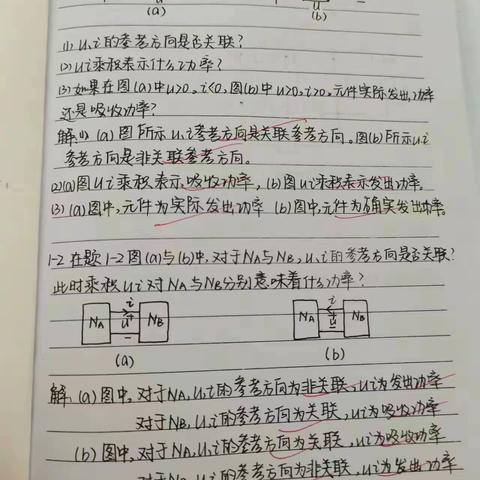 u
(a)
(b)
(1) u、i的参考方向是否关联？
(2) ui乘积表示什么功率？
(3) 如果在图(a)中u>0、i<0，图(b)中u>0，i>0，元件实际发出功率
还是吸收功率？
解：(1) (a)图所示u、i参考方向是关联参考方向。图(b)所示u、i
参考方向是非关联参考方向。
(2) (a)图ui乘积表示吸收功率，(b)图ui乘积表示发出功率。
(3) (a)图中，元件为实际发出功率 (b)图中，元件为确实发出功率。
1-2 在题1-2图(a)与(b)中，对于NA与NB，u、i的参考方向是否关联？
此时乘积ui对NA与NB分别意味着什么功率？
NA i + u - NB
NA i + u - NB
(a)
(b)
解 (a)图中，对于NA，u、i的参考方向为非关联，ui为发出功率
对于NB，u、i的参考方向为关联，ui为吸收功率
(b)图中，对于NA，u、i的参考方向为关联，ui为吸收功率
对于NB，u、i的参考方向为非关联，ui为发出功率